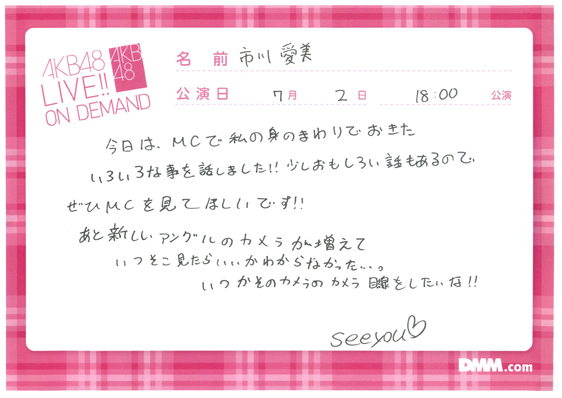 AKB48
LIVE!!
ON DEMAND
AKB
48
名 前 市川 愛美
公演日 7月 2日 18:00 公演
今日は、MCで私の身のまわりでおきた
いろいろな事を話しました!! 少しおもしろい話もあるので、
ぜひMCを見てほしいです!!
あと新しいアングルのカメラが増えて
いつそこ見たらいいかわからなかった...。
いつかそのカメラのカメラ目線をしたいな!!
see you♡
DMM.com